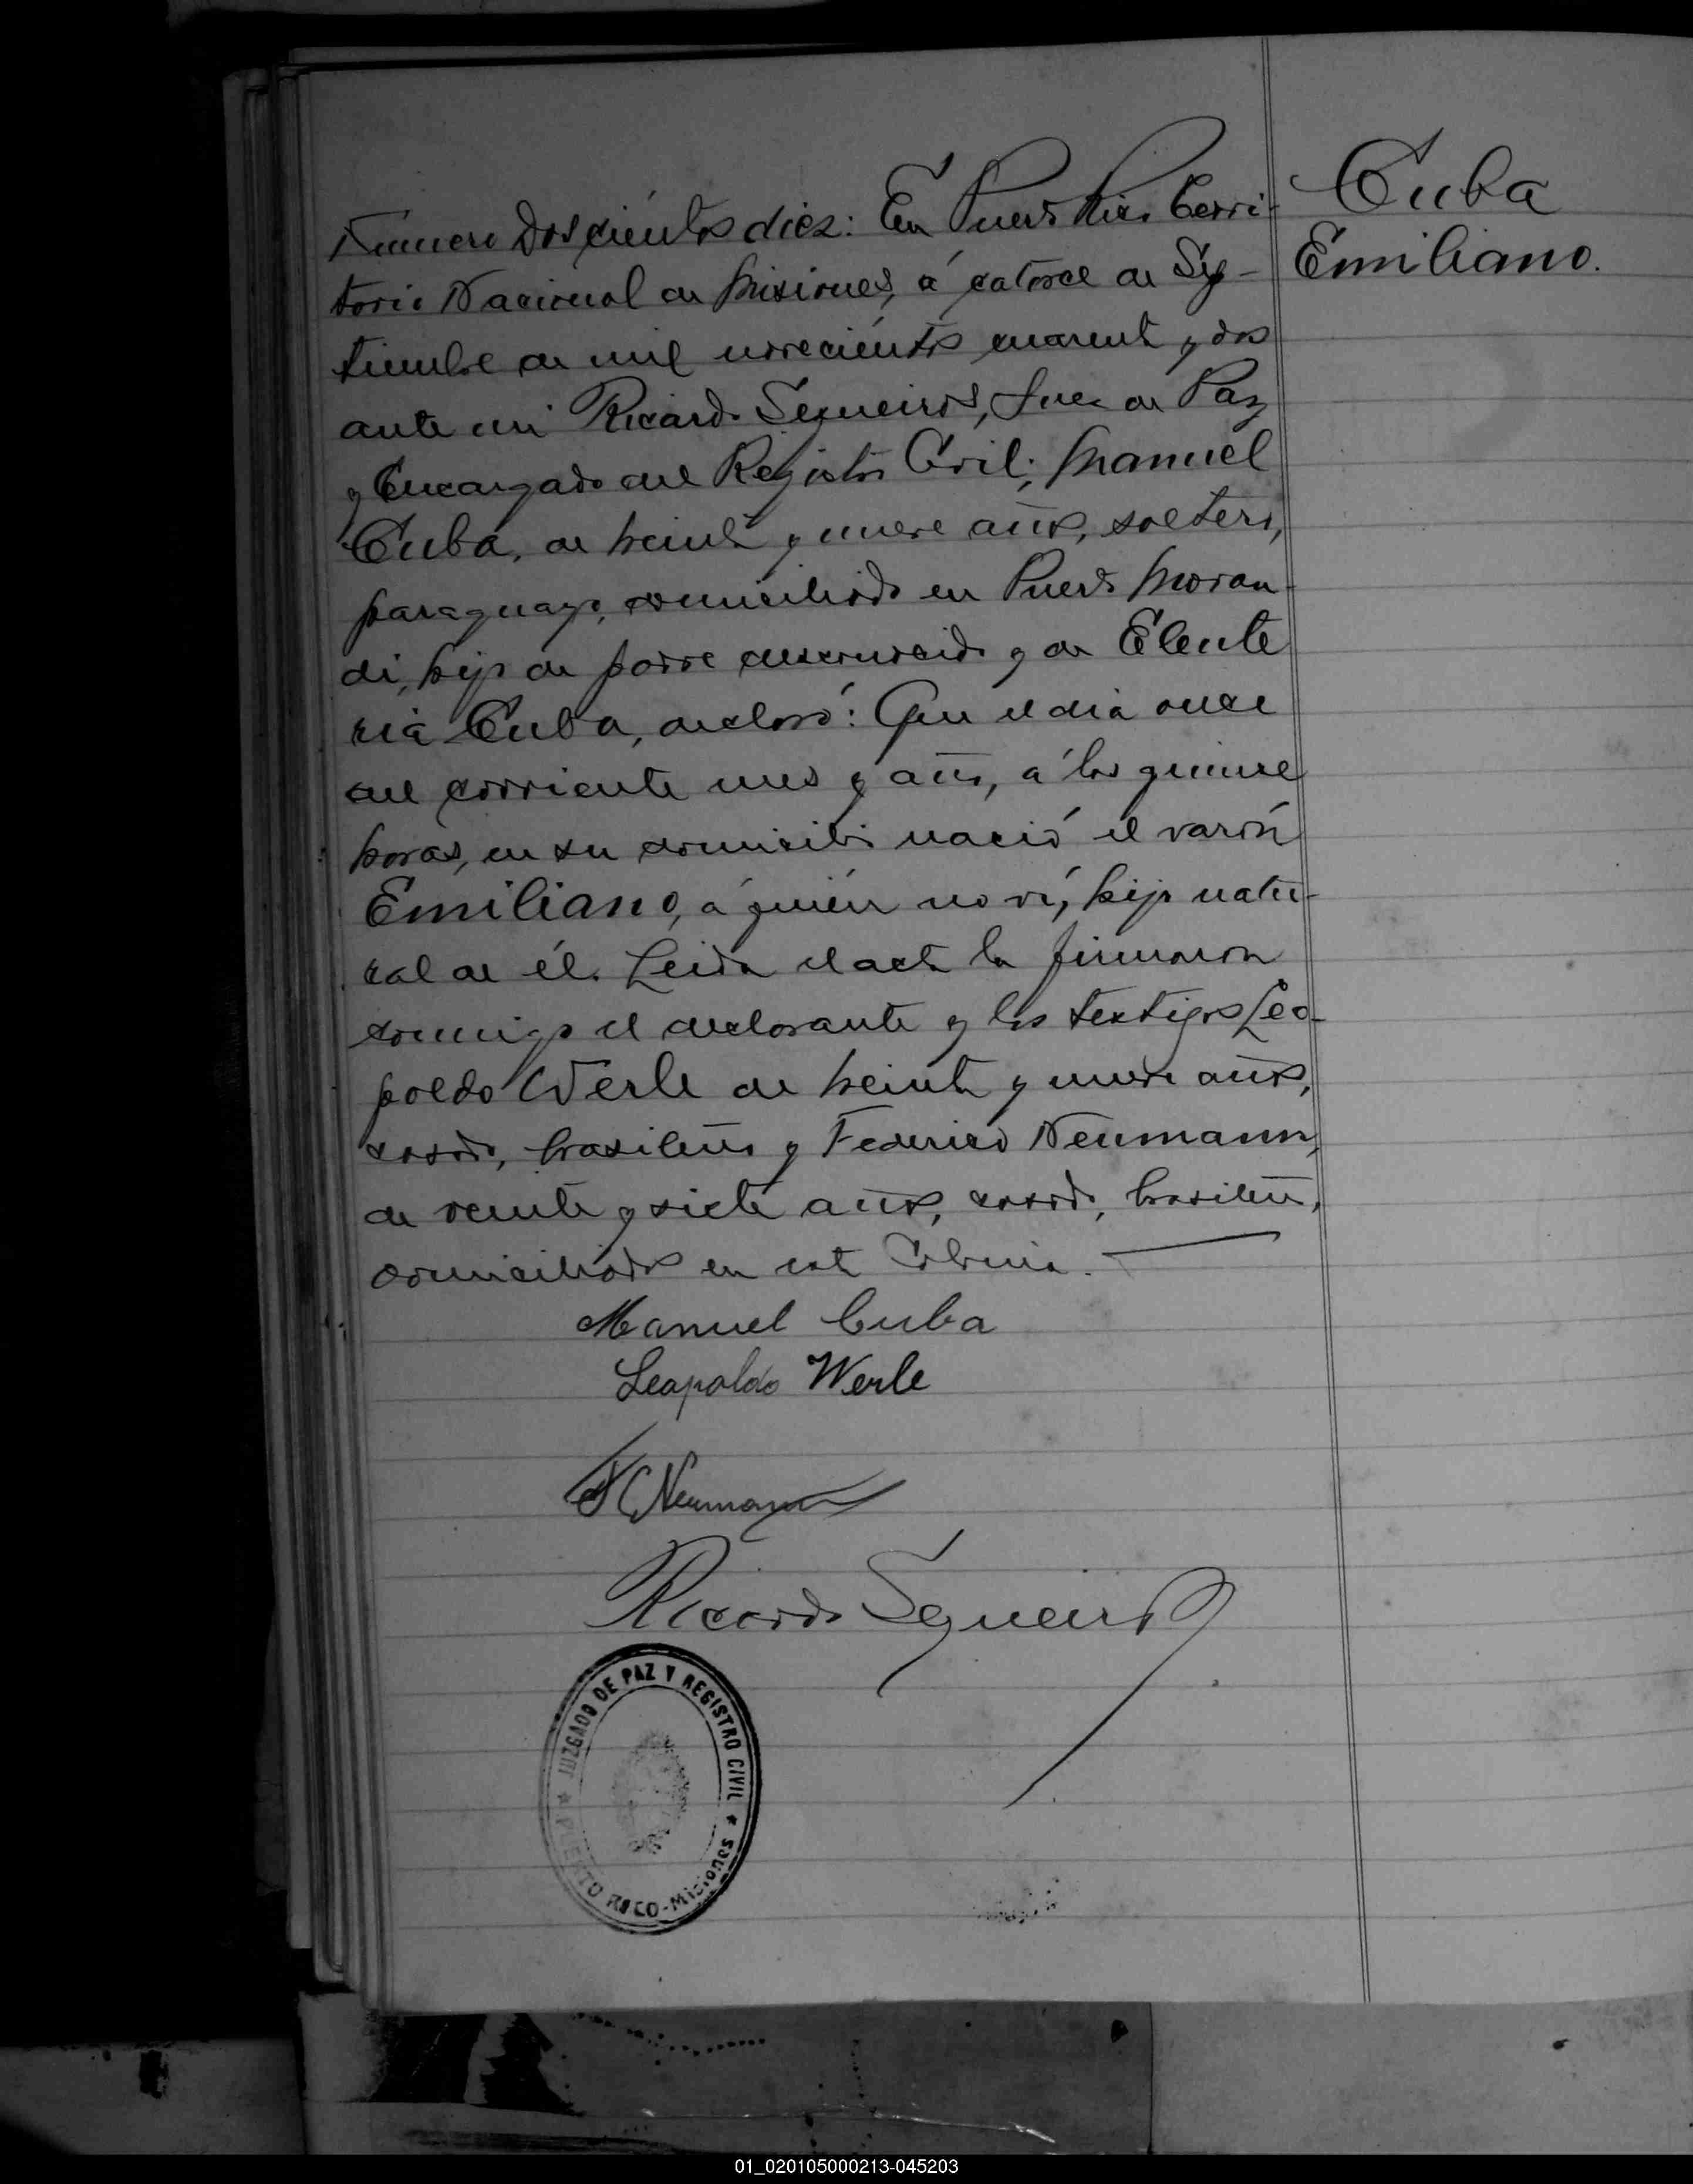 Cuba
Emiliano.
Número Doscientos diez: En Puerto Rico Terri-
torio Nacional de Misiones, á catorce de Sep-
tiembre de mil novecientos cuarenta y dos
ante mi Ricardo Sequeiros, Juez de Paz
y Encargado del Registro Civil; Manuel
Cuba, de treinta y nueve años, soltero,
paraguayo, domiciliado en Puerto Moran-
di, hijo de padre desconocido y de Eleute
ria Cuba, declaró: Que el día once
del corriente mes y año, á las quince
horas, en su domicilio nació el varón
Emiliano, á quién no ví, hijo natu-
ral de él. Leida el acta la firmaron
conmigo el declarante y los testigos Leo-
poldo Werle de treinta y nueve años,
casado, brasileño y Federico Neumann,
de veinte y siete años, casado, brasileño,
domiciliados en esta Colonia.
Manuel Cuba
Leopoldo Werle
Neumann
Ricardo Sequeiros
JUZGADO DE PAZ Y REGISTRO CIVIL
★ PUERTO RICO-Misiones ★
01_020105000213-045203